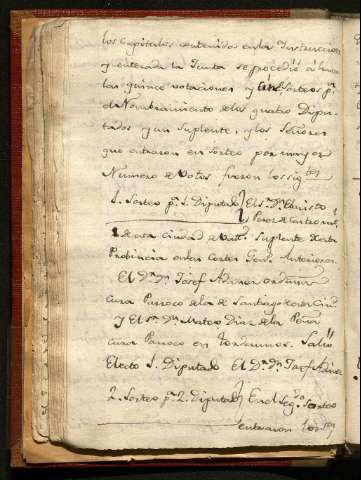 los Capitulos contenidos en la Instruccion
y enterada la Junta se procedió á hacer
las quince votaciones y cinco Sorteos pª
el Nombramiento de los quatro Dipu-
tados y un Suplente, y los Señores
que entraron en Sorteo por mayor
Numero de Votos fueron los sigtes
1. Sorteo pª 1. Diputado } El Sr. Dn Evaristo
Perez de Castro
de esta Ciudad de Vallid. Suplente de esta
Provincia en las Cortes Gens. Anteriores
El Dr. Dn. Josef Adever
Cura Parroco de la de Santiago de esta Ciud
Y El Sr. Dn. Mateo Diaz de la
cura Parroco en Tordeumos. Salió
Electo 1. Diputado El Dr. Dn Josef
2. Sorteo pª 2. Diputado } En el Segdo Sorteo
entraron los